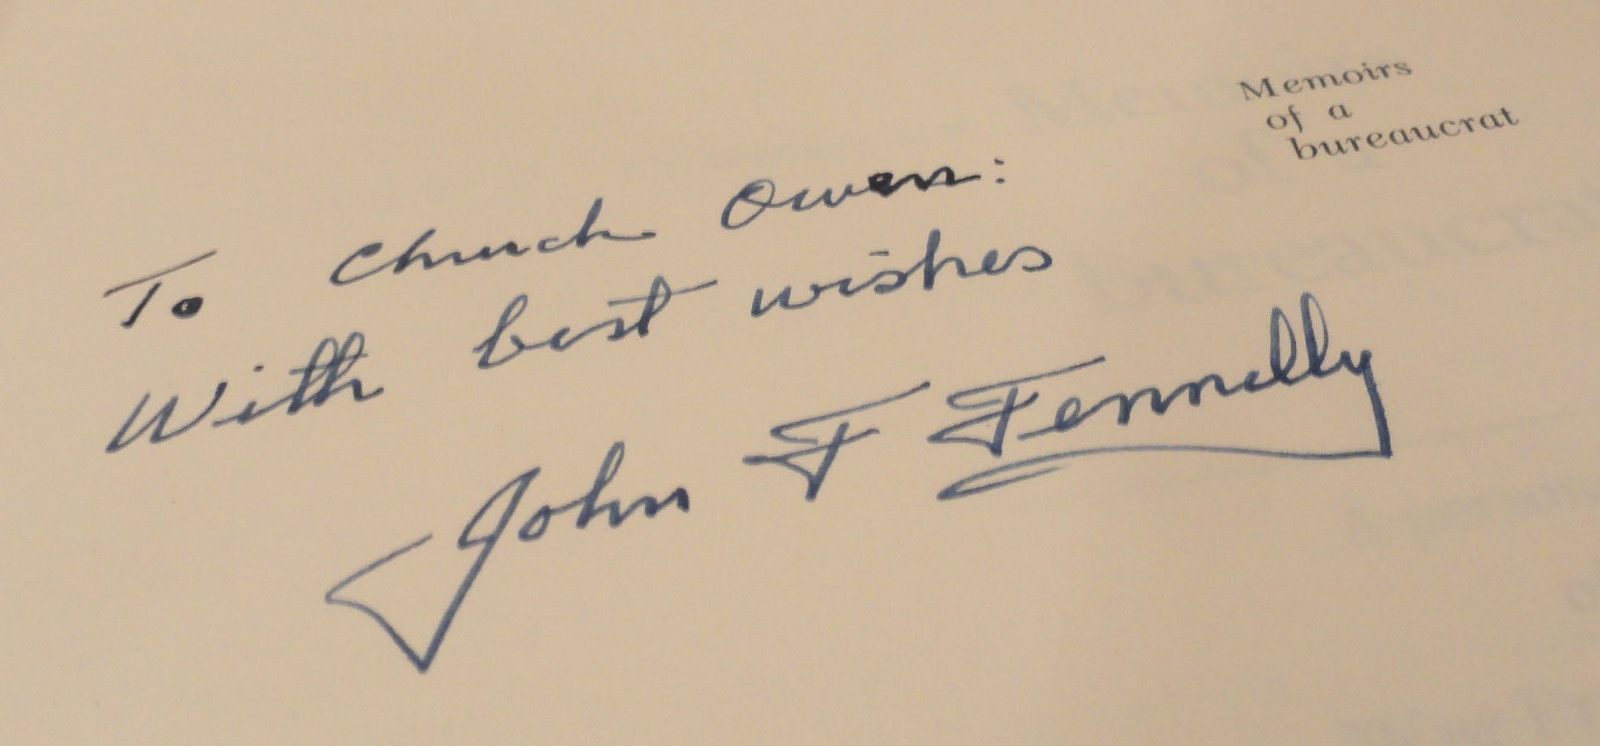 Memoirs
of a
bureaucrat
To Chuck Owen:
With best wishes
John F Fennelly